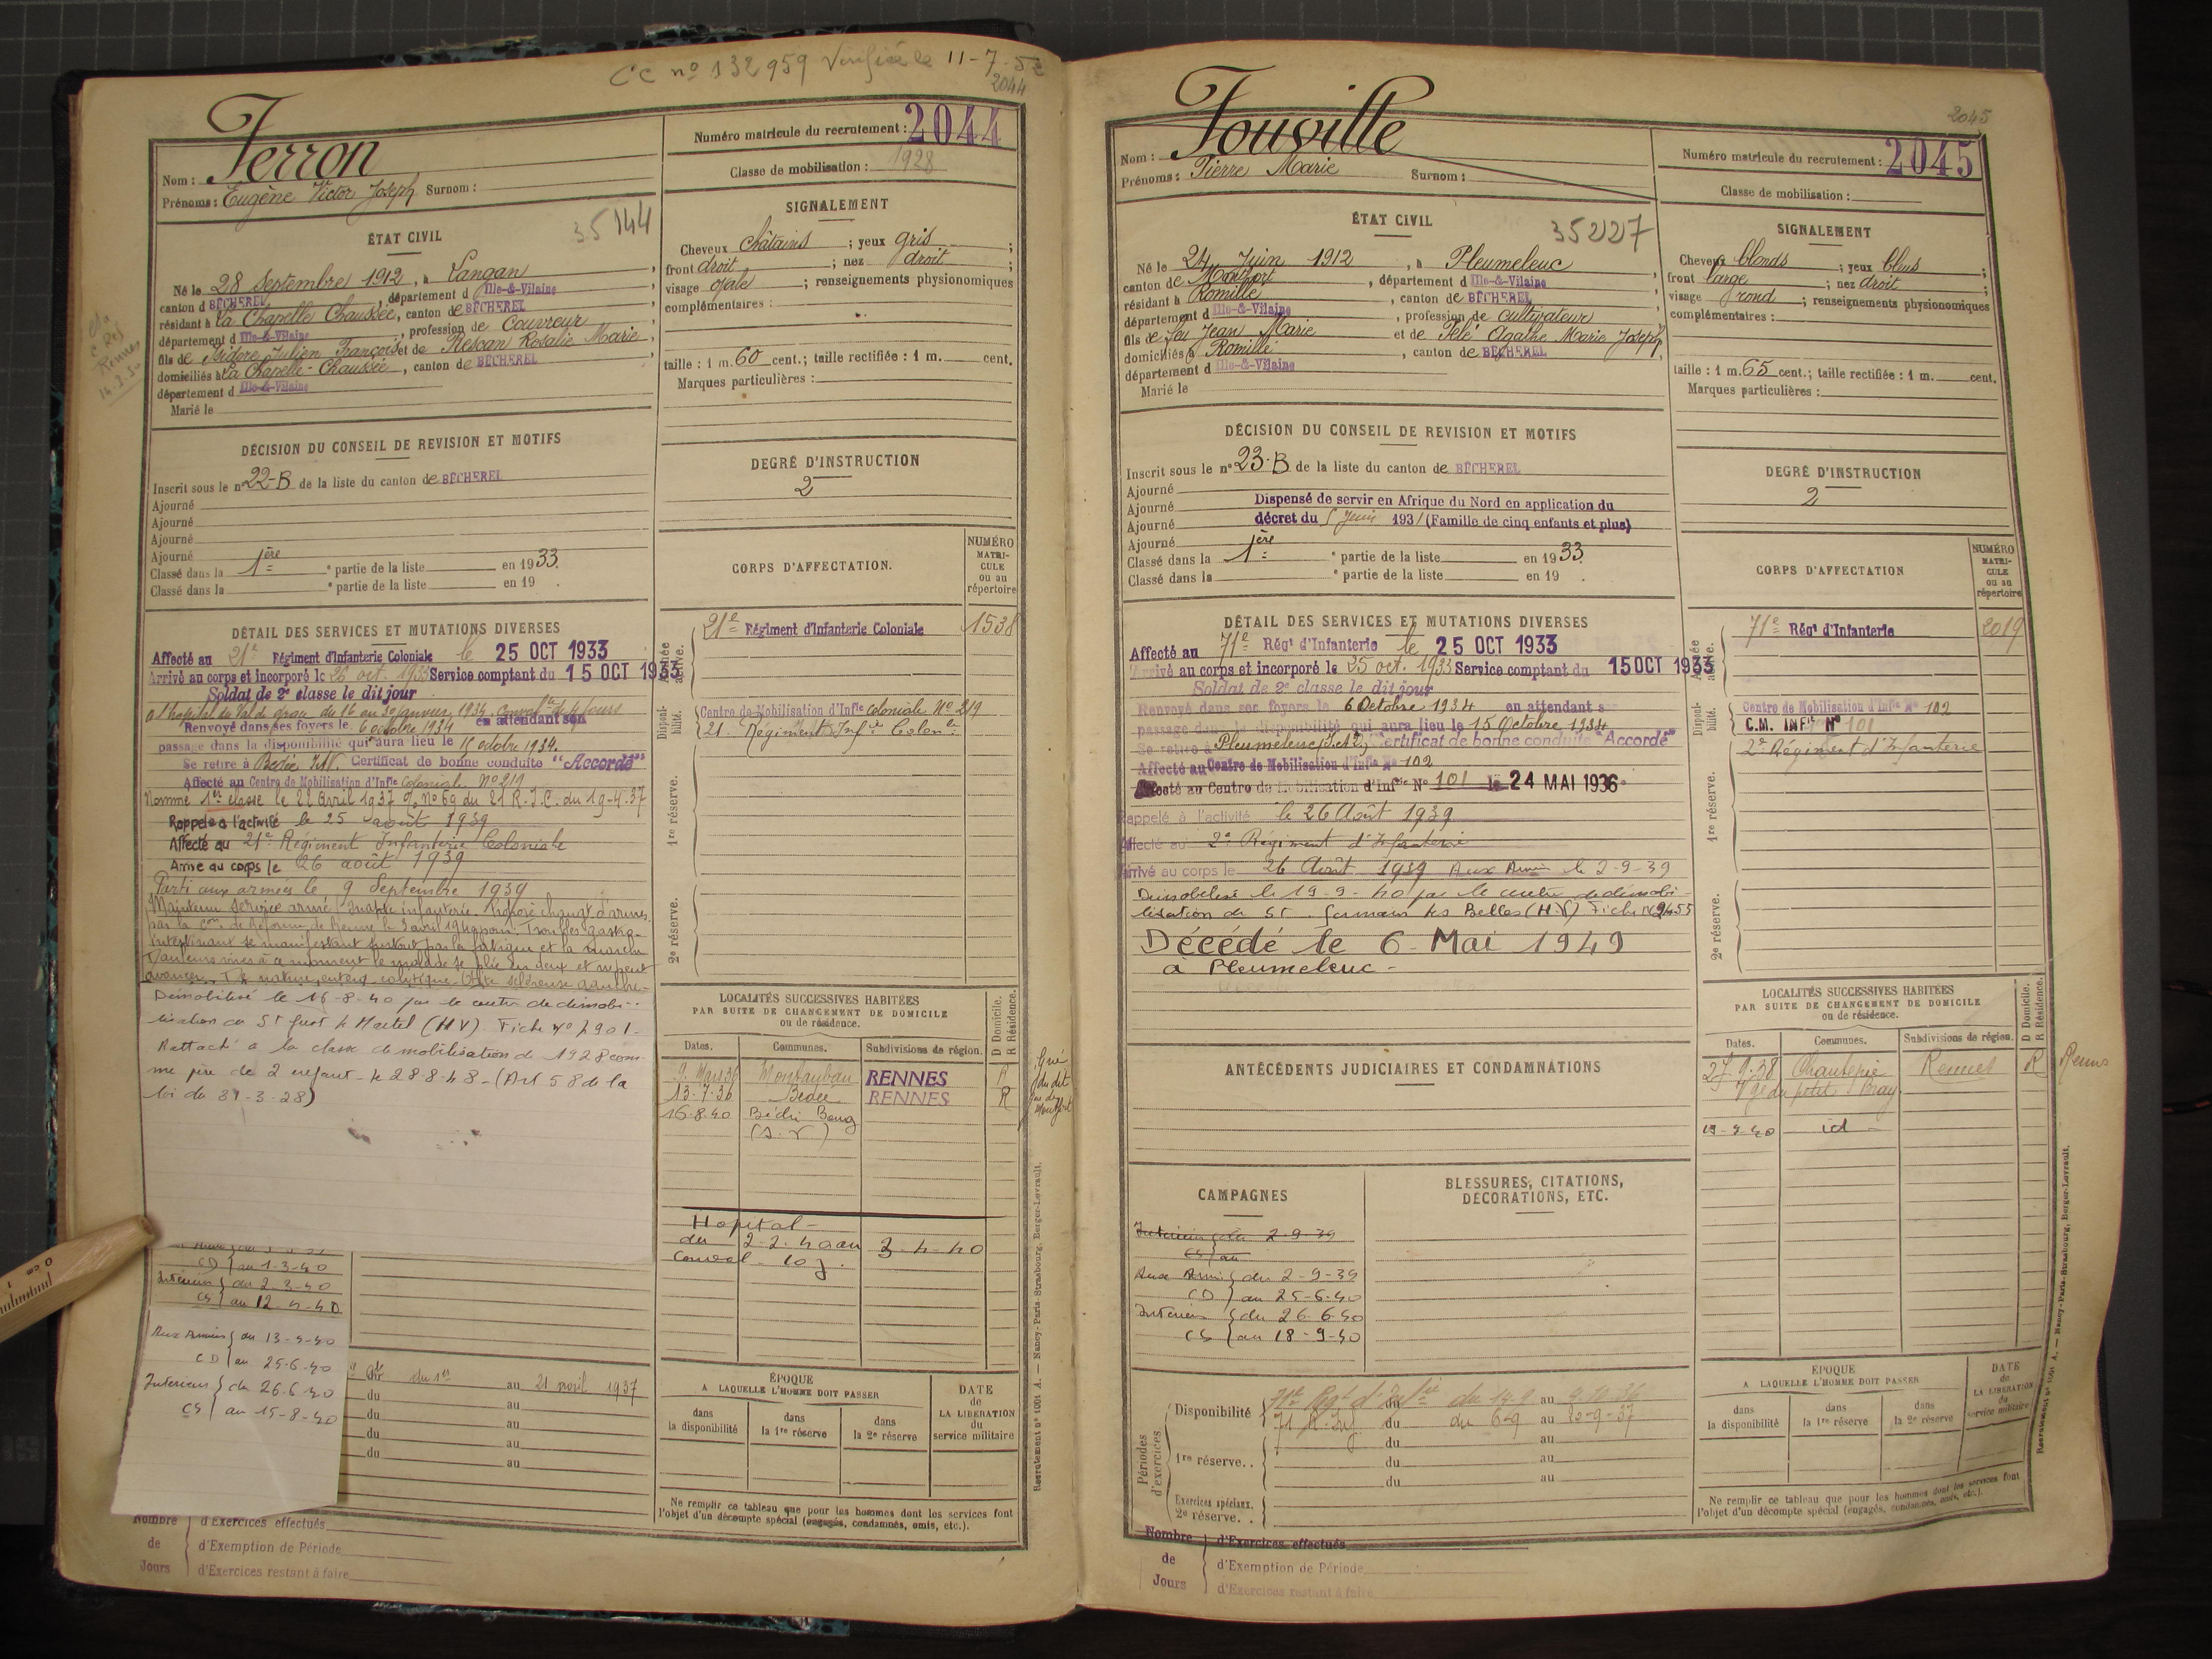 CC nº 132959 Vérifiée le 11-7-52
2044
Ferron
Nom :
Prénoms : Eugène Victor Joseph Surnom :
Numéro matricule du recrutement : 2044
Classe de mobilisation : 1928
35144
ÉTAT CIVIL
Né le 28 Septembre 1912, à Langan,
canton d BÉCHEREL, département d Ille-&-Vilaine
résidant à La Chapelle Chaussée, canton de BÉCHEREL
département d Ille-&-Vilaine, profession de Couvreur
fils de Isidore Julien François et de Rescan Rosalie Marie,
domiciliés à La Chapelle-Chaussée, canton de BÉCHEREL
département d Ille-&-Vilaine
Marié le
SIGNALEMENT
Cheveux châtains ; yeux gris ;
front droit ; nez droit ;
visage ovale ; renseignements physionomiques
complémentaires :
taille : 1 m. 60 cent.; taille rectifiée : 1 m. cent.
Marques particulières :
DÉCISION DU CONSEIL DE REVISION ET MOTIFS
Inscrit sous le nº 22-B de la liste du canton de BÉCHEREL
Ajourné
Ajourné
Ajourné
Ajourné
Classé dans la 1ère e partie de la liste en 1933.
Classé dans la e partie de la liste en 19 .
DEGRÉ D'INSTRUCTION
2
CORPS D'AFFECTATION.
NUMÉRO
MATRI-
CULE
ou au
répertoire
Armée active.
21e Régiment d'Infanterie Coloniale 1538
Disponi-
bilité.
Centre de Mobilisation d'Infie Coloniale Nº 219
21e Régiment Infie Colonle
1re réserve.
2e réserve.
DÉTAIL DES SERVICES ET MUTATIONS DIVERSES
Affecté au 21e Régiment d'Infanterie Coloniale le 25 OCT 1933
Arrivé au corps et incorporé le 26 oct. 1933 Service comptant du 15 OCT 1933
Soldat de 2e classe le dit jour
à l'hopital du Val de grace du 16 au 30 janvier 1934
Renvoyé dans ses foyers le 6 octobre 1934 en attendant son
passage dans la disponibilité qui aura lieu le 15 octobre 1934.
Se retire à Bedée I&V. Certificat de bonne conduite "Accordé"
Affecté au Centre de Mobilisation d'Infie Coloniale Nº 219
Nommé 1er classe le 22 Avril 1937 O. nº 69 du 21 R.I.C. du 19-4-37
Rappelé à l'activité le 25 août 1939
Affecté au 21e Régiment Infanterie Coloniale
Arrivé au corps le 26 août 1939
Parti aux armées le 9 Septembre 1939
Maintenu service armé Inapte infanterie. Proposé changt d'armes
par la Com de Réforme de Rennes le 3 avril 1940 pour : Troubles gastro-
intestinaux se manifestant surtout par la fatigue et la marche
à ce moment le malade se plie en deux et ne peut
avancer.
Démobilisé le 16-8-40 par le centre de démobi-
lisation de St Just le Martel (HV) Fiche Nº 1901-
Rattaché à la classe de mobilisation de 1928 com-
me père de 2 enfants le 28-8-48 - (Art 58 de la
loi du 31-3-28)
LOCALITÉS SUCCESSIVES HABITÉES
PAR SUITE DE CHANGEMENT DE DOMICILE
ou de résidence.
D Domicile.
R Résidence.
Dates. Communes. Subdivisions de région.
9 Mars 36 Montauban RENNES R
13-7-36 Bedée RENNES R
16-8-40 Bédée Bourg
(I.V)
Hopital-
du 2-2-40 au 3-4-40
Conval - 10 j.
CD au 1-3-40
Intérieur du 2-3-40
CS au 12-4-40
Aux Armées du 13-4-40
CD au 25-6-40
Intérieur du 26-6-40
CS au 15-8-40
du 1er au 21 avril 1937
du au
du au
du au
du au
ÉPOQUE
A LAQUELLE L'HOMME DOIT PASSER
dans
la disponibilité
dans
la 1re réserve
dans
la 2e réserve
DATE
de
LA LIBÉRATION
du
service militaire
Ne remplir ce tableau que pour les hommes dont les services font
l'objet d'un décompte spécial (engagés, condamnés, omis, etc.).
Nombre
de
Jours
d'Exercices effectués
d'Exemption de Période
d'Exercices restant à faire
Recrutement nº 1001 A. — Nancy-Paris-Strasbourg, Berger-Levrault.
2045
Fouville
Nom :
Prénoms : Pierre Marie Surnom :
Numéro matricule du recrutement : 2045
Classe de mobilisation :
35227
ÉTAT CIVIL
Né le 24 Juin 1912, à Pleumeleuc
canton de Montfort, département d Ille-&-Vilaine
résidant à Romillé, canton de BÉCHEREL
département d Ille-&-Vilaine, profession de cultivateur
fils de feu Jean Marie et de Pelé Agathe Marie Joseph,
domiciliés à Romillé, canton de BÉCHEREL
département d Ille-&-Vilaine
Marié le
SIGNALEMENT
Cheveux blonds ; yeux bleus ;
front large ; nez droit ;
visage rond ; renseignements physionomiques
complémentaires :
taille : 1 m. 65 cent.; taille rectifiée : 1 m. cent.
Marques particulières :
DÉCISION DU CONSEIL DE REVISION ET MOTIFS
Inscrit sous le nº 23-B de la liste du canton de BÉCHEREL
Ajourné
Ajourné Dispensé de servir en Afrique du Nord en application du
Ajourné décret du 5 Juin 1931 (Famille de cinq enfants et plus)
Ajourné
Classé dans la 1ère e partie de la liste en 1933.
Classé dans la e partie de la liste en 19 .
DEGRÉ D'INSTRUCTION
2
CORPS D'AFFECTATION
NUMÉRO
MATRI-
CULE
ou au
répertoire
Armée active.
71e Régt d'Infanterie 2019
Disponi-
bilité.
Centre de Mobilisation d'Infie Nº 102
C.M. INFie Nº 101
1re réserve.
2e Régiment d'Infanterie
2e réserve.
DÉTAIL DES SERVICES ET MUTATIONS DIVERSES
Affecté au 71e Régt d'Infanterie le 25 OCT 1933
Arrivé au corps et incorporé le 25 oct. 1933 Service comptant du 15 OCT 1933
Soldat de 2e classe le dit jour
Renvoyé dans ses foyers le 6 Octobre 1934 en attendant s
passage dans la disponibilité qui aura lieu le 15 Octobre 1934
Se retire à Pleumeleuc (I.et V.) Certificat de bonne conduite "Accordé"
Affecté au Centre de Mobilisation d'Infie Nº 102
Affecté au Centre de Mobilisation d'Infie Nº 101 le 24 MAI 1936
Rappelé à l'activité le 26 Août 1939
Affecté au 2e Régiment d'Infanterie
Arrivé au corps le 26 Août 1939 Aux Armées le 2-9-39
Démobilisé le 19-9-40 par le centre de démobi-
lisation de St Germain les Belles (H.V) Fiche Nº 9455
Décédé le 6 Mai 1949
à Pleumeleuc -
ANTÉCÉDENTS JUDICIAIRES ET CONDAMNATIONS
LOCALITÉS SUCCESSIVES HABITÉES
PAR SUITE DE CHANGEMENT DE DOMICILE
ou de résidence.
D Domicile.
R Résidence.
Dates. Communes. Subdivisions de région.
27-9-38 Chantepie Rennes R Rennes
Vge du petit Bray
19-9-40 id -
CAMPAGNES
BLESSURES, CITATIONS,
DÉCORATIONS, ETC.
Intérieur du 2-9-39
CS au
Aux Armées du 2-9-39
CD au 25-6-40
Intérieur du 26-6-40
CS au 18-9-40
Périodes d'exercices
Disponibilité 71e Rgt d'Infie du 14-9 au 9-10-36
71 R. Inf du 6-9 au 20-9-37
1re réserve..
du au
du au
du au
Exercices spéciaux.
2e réserve..
ÉPOQUE
A LAQUELLE L'HOMME DOIT PASSER
dans
la disponibilité
dans
la 1re réserve
dans
la 2e réserve
DATE
de
LA LIBÉRATION
du
service militaire
Ne remplir ce tableau que pour les hommes dont les services font
l'objet d'un décompte spécial (engagés, condamnés, omis, etc.).
Nombre
de
Jours
d'Exercices effectués
d'Exemption de Période
d'Exercices restant à faire
Recrutement nº 1001 A. — Nancy-Paris-Strasbourg, Berger-Levrault.